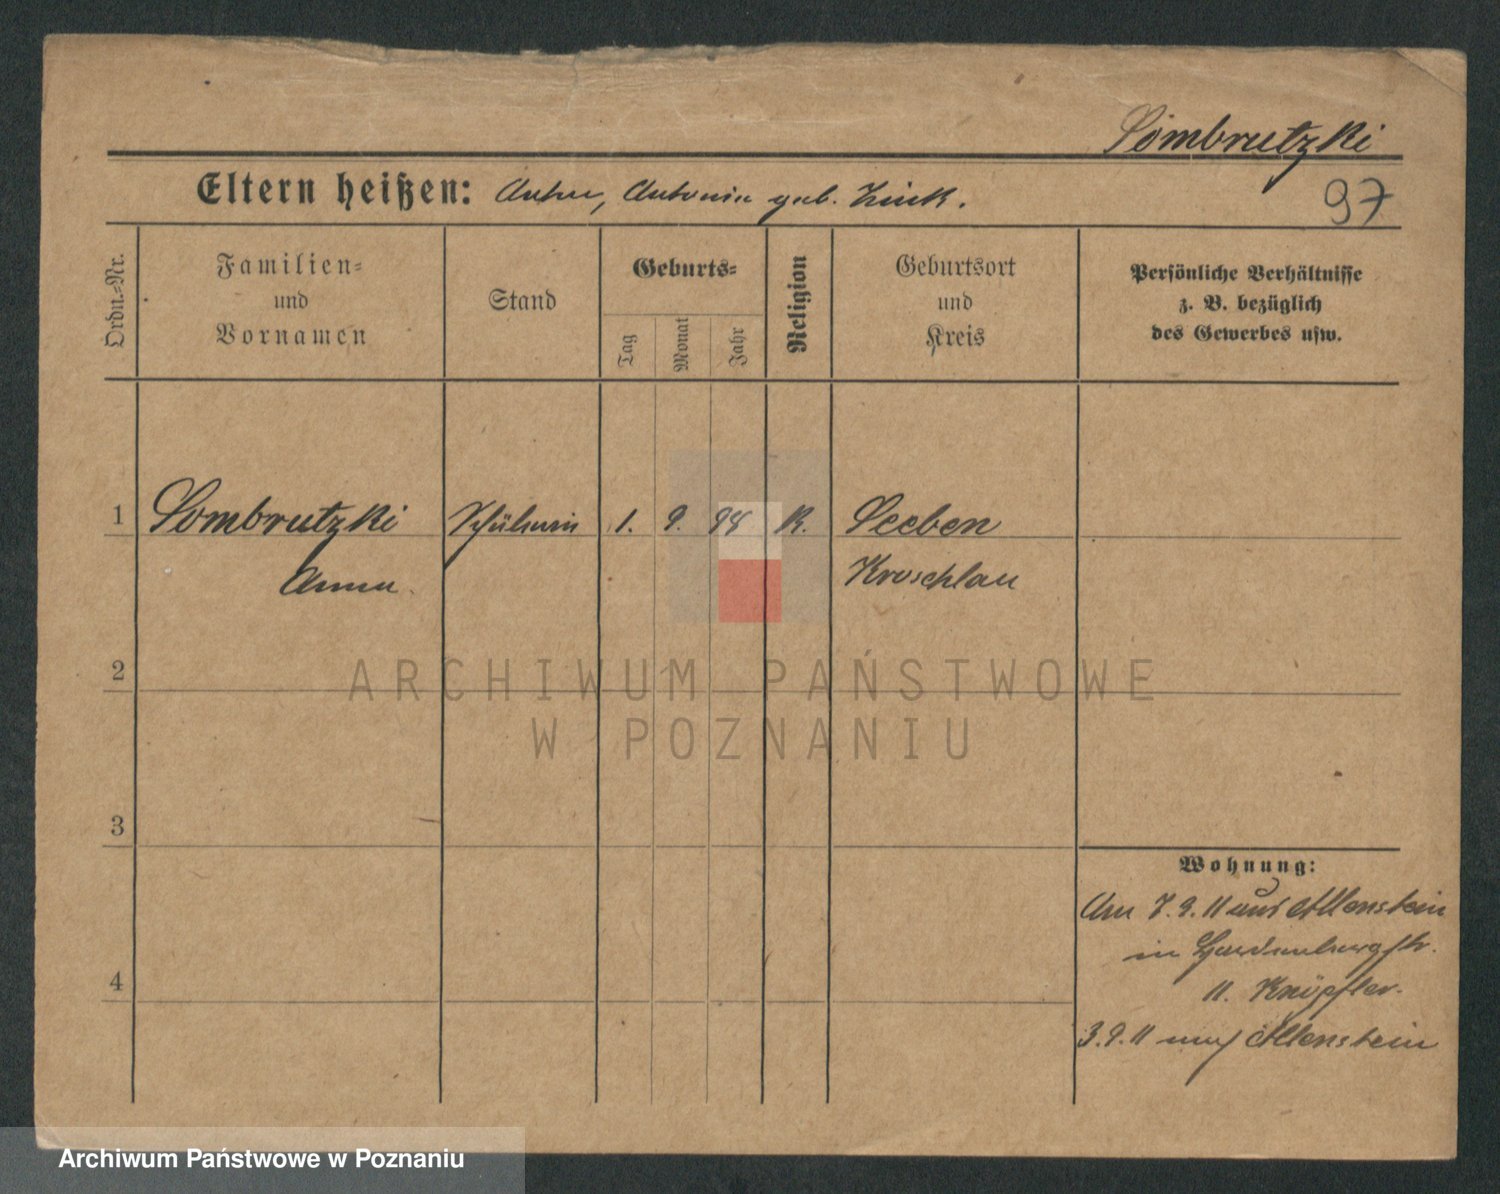 Sombrutzki
Eltern heißen: Anton, Antonie geb. Zink.
97
Ordn.-Nr.
Familien-
und
Vornamen
Stand
Geburts-
Tag
Monat
Jahr
Religion
Geburtsort
und
Kreis
Persönliche Verhältnisse
z. B. bezüglich
des Gewerbes usw.
1 Sombrutzki Schülerin 1. 9. 98 K. Seeben
Anna. Kroschlau
2
3
4
Wohnung:
Am 7.9.11 aus Allenstein
in Hardenbergstr.
11. Knöpfler.
3.9.11 nach Allenstein
ARCHIWUM PAŃSTWOWE
W POZNANIU
Archiwum Państwowe w Poznaniu